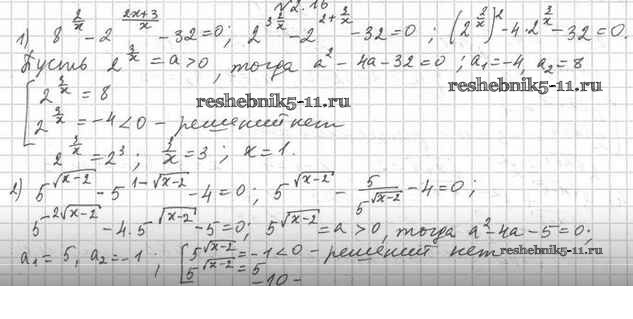 √2.16
1) 8^(2/x) - 2^((2x+3)/x) - 32 = 0; 2^(3·2/x) - 2^(2+3/x) - 32 = 0; (2^(3/x))² - 4·2^(3/x) - 32 = 0.
Пусть 2^(3/x) = a > 0, тогда a² - 4a - 32 = 0; a₁ = -4, a₂ = 8
[ 2^(3/x) = 8 reshebnik5-11.ru reshebnik5-11.ru
2^(3/x) = -4 < 0 - решений нет
2^(3/x) = 2³; 3/x = 3; x = 1.
2) 5^√(x-2) - 5^(1-√(x-2)) - 4 = 0; 5^√(x-2) - 5/5^√(x-2) - 4 = 0;
5^(-2√(x-2)) - 4·5^√(x-2) - 5 = 0; 5^√(x-2) = a > 0, тогда a² - 4a - 5 = 0.
a₁ = 5, a₂ = -1; [ 5^√(x-2) = -1 < 0 - решений нет reshebnik5-11.ru
5^√(x-2) = 5